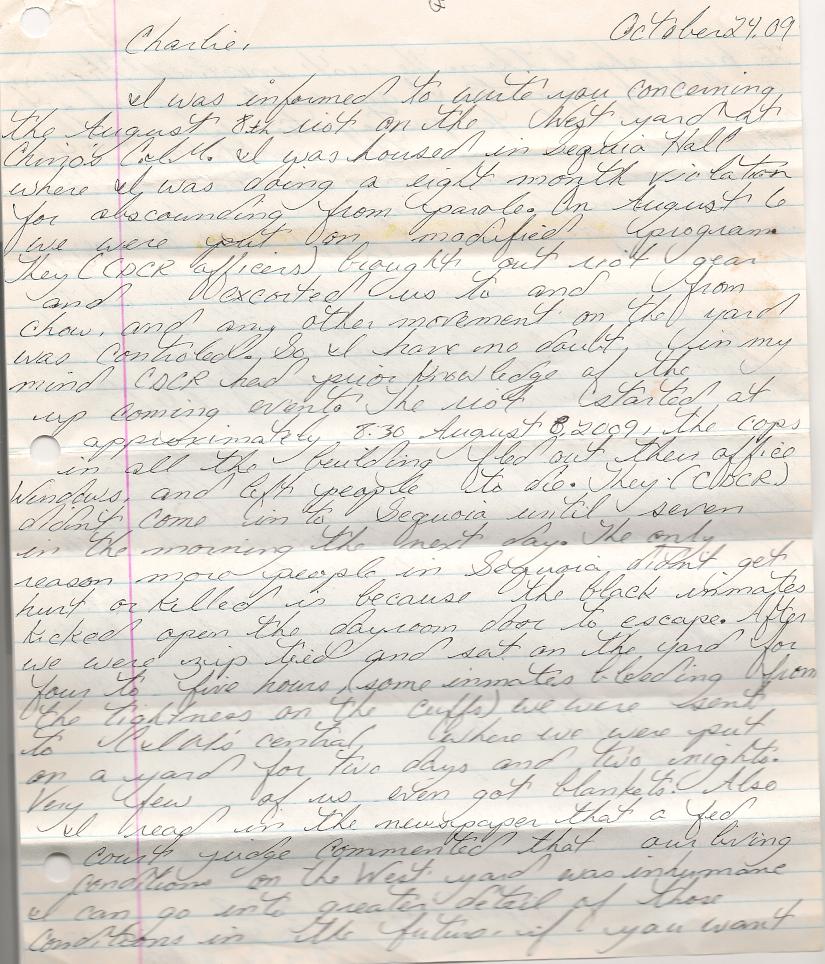 October 24, 09
Charlie,
I was informed to write you concerning
the August 8th riot on the West yard at
Chino's C.I.M. I was housed in Sequoia Hall
where I was doing a eight month violation
for abscounding from parole. On August 6
we were put on modified program.
They (CDCR officers) brought out riot gear
and excorted us to and from
chow, and any other movement on the yard
was controled. So, I have no doubt in my
mind CDCR had prior knowledge of the
up coming event. The riot started at
approximately 8:30 August 8, 2009, the cops
in all the building fled out their office
windows, and left people to die. They (CDCR)
didn't come in to Sequoia until seven
in the morning the next day. The only
reason more people in Sequoia didn't get
hurt or killed is because the black inmates
kicked open the dayroom door to escape. After
we were zip tied and sat on the yard for
four to five hours (some inmates bleeding from
the tightness on the cuffs) we were sent
to C.I.M.'s central where we were put
on a yard for two days and two nights.
Very few of us even got blankets. Also
I read in the newspaper that a fed
court judge commented that our living
conditions on the West yard was inhumane
I can go into greater detail of those
conditions in the future, if you want